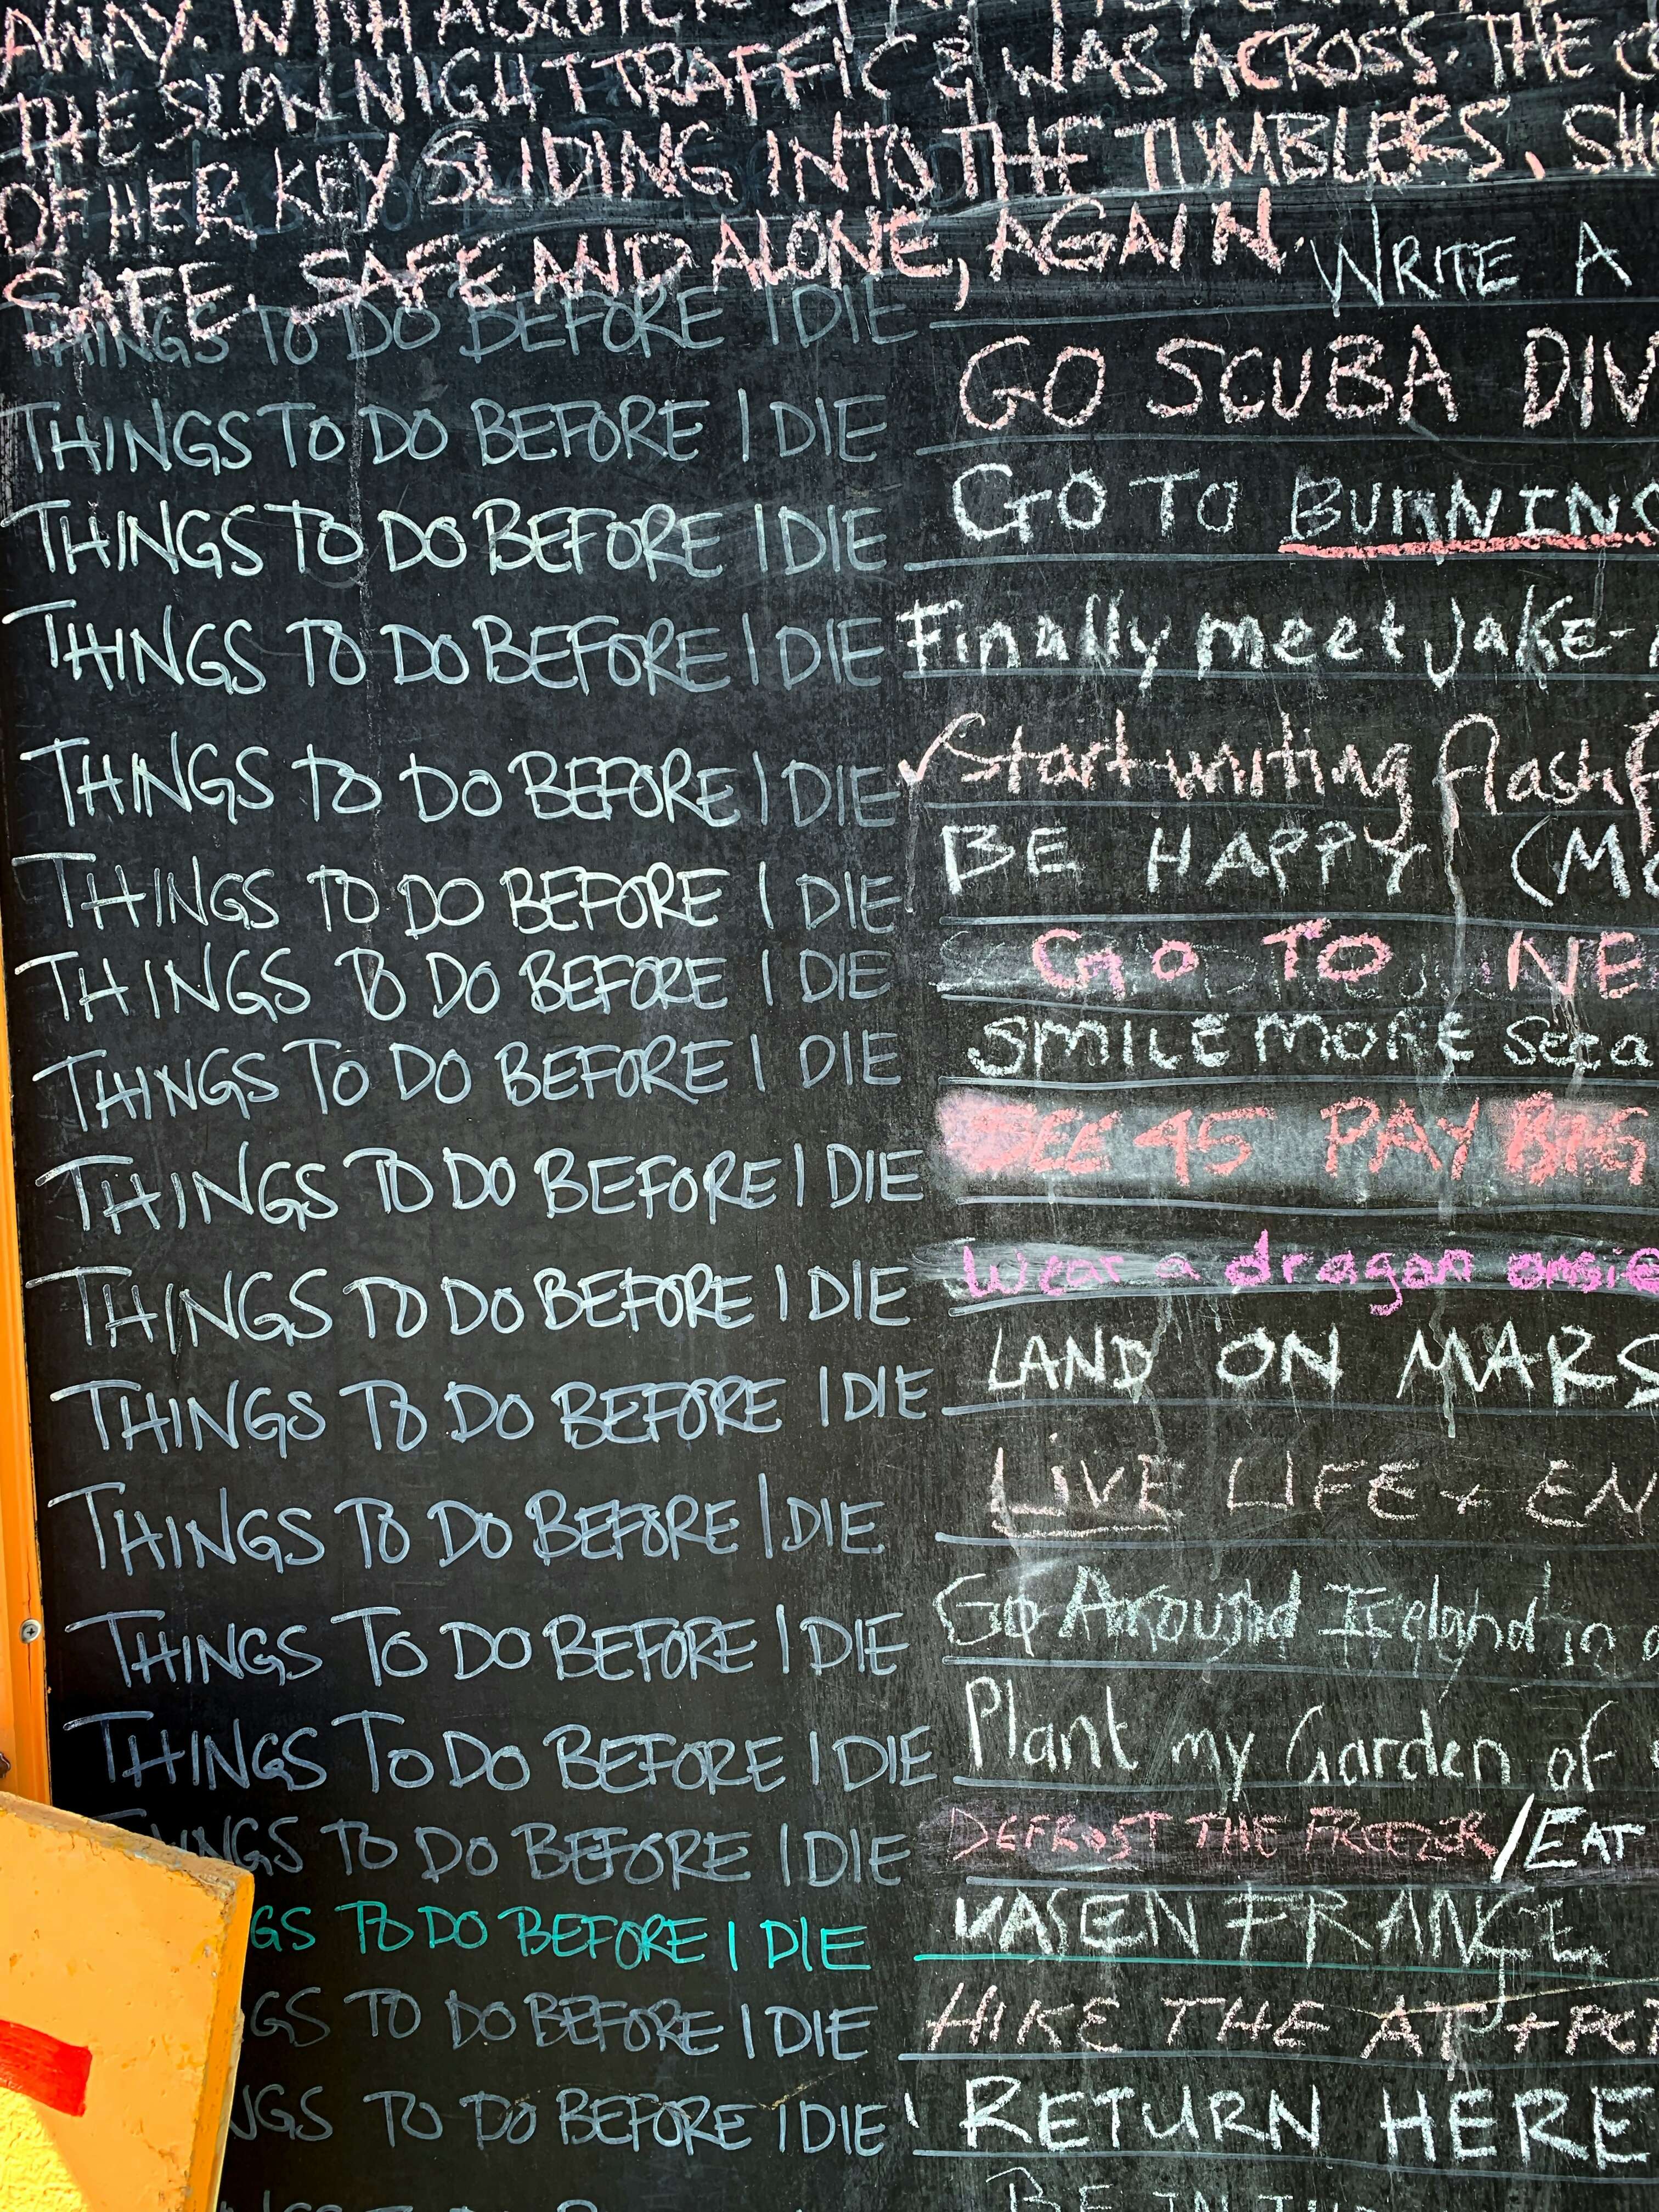 AWAY. WITH A
THE SLOW NIGHT TRAFFIC & WAS ACROSS. THE
OF HER KEY SLIDING INTO THE TUMBLERS. SH
SAFE. SAFE AND ALONE, AGAIN.
THINGS TO DO BEFORE I DIE WRITE A
THINGS TO DO BEFORE I DIE GO SCUBA DIV
THINGS TO DO BEFORE I DIE GO TO BURNING
THINGS TO DO BEFORE I DIE Finally meet Jake-
THINGS TO DO BEFORE I DIE Start writing flash f
THINGS TO DO BEFORE I DIE BE HAPPY (MO
THINGS TO DO BEFORE I DIE GO TO NE
THINGS TO DO BEFORE I DIE SMILE MORE
THINGS TO DO BEFORE I DIE SEE 45 PAY BIG
THINGS TO DO BEFORE I DIE Wear a dragon onsie
THINGS TO DO BEFORE I DIE LAND ON MARS
THINGS TO DO BEFORE I DIE LIVE LIFE + EN
THINGS TO DO BEFORE I DIE Go Around Iceland in
THINGS TO DO BEFORE I DIE Plant my Garden of
NGS TO DO BEFORE I DIE DEFROST THE FREEZER / EAT
GS TO DO BEFORE I DIE EN FRANCE
GS TO DO BEFORE I DIE HIKE THE AT + PCT
NGS TO DO BEFORE I DIE RETURN HERE
BE IN THE